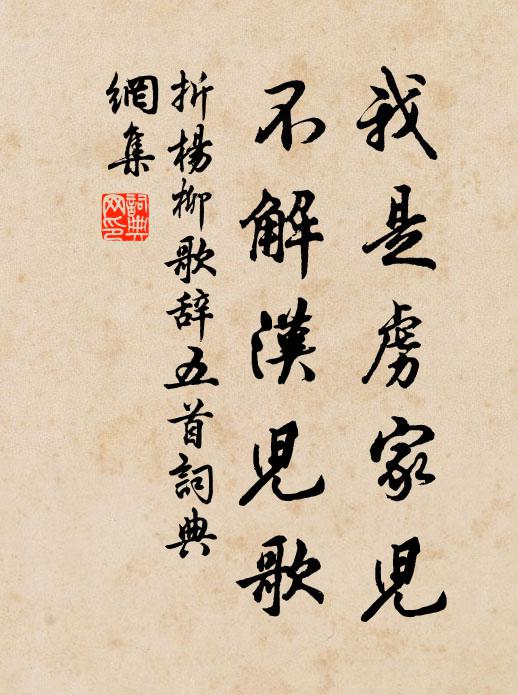 我是虏家児
不解漢児歌
折楊柳歌辞五首詞典
網集
詞典
网印